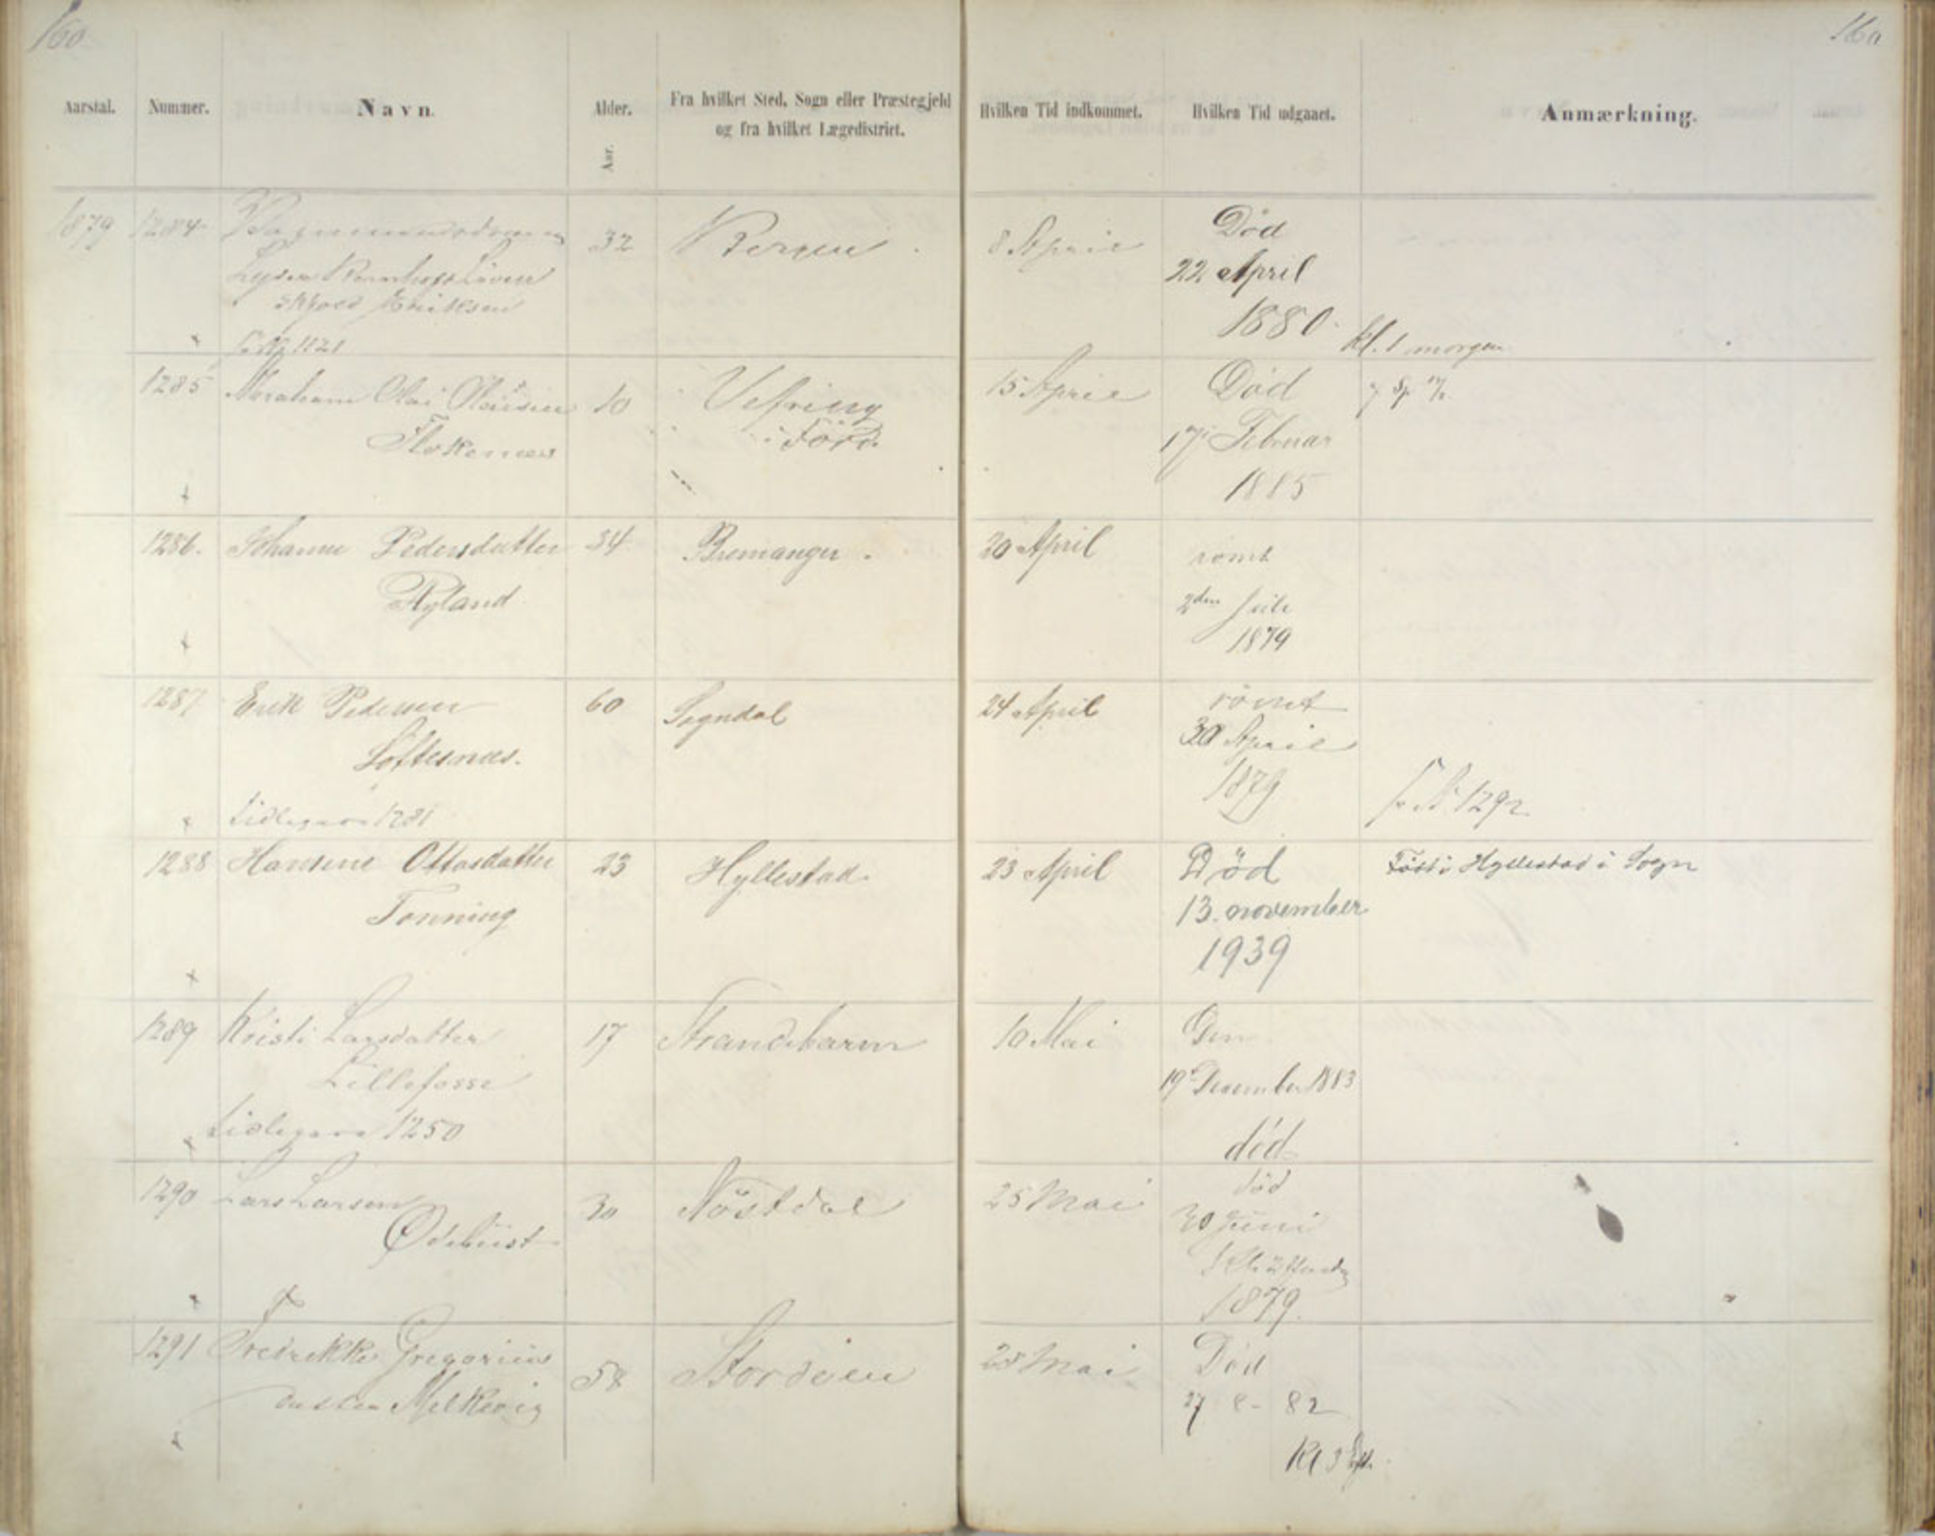 160
160
Aarstal.
Nummer.
Navn.
Alder.
Aar.
Fra hvilket Sted, Sogn eller Præstegjeld
og fra hvilket Lægedistrict.
Hvilken Tid indkommet.
Hvilken Tid udgaaet.
Anmærkning.
1879 1284 32 Bergen 8 April Død
22 April
Eriksen
1880
1121 kl. 1 morgen
1285 Abraham Olai Olaisen 10 Vefring 15 April Død
Flokenes i Förd. 17 Februar
1885
1286. Johanne Pedersdatter 34 Bremanger. 20 April römt
Ryland 2den Juli
1879
1287 Erik Pedersen 60 Sogndal 24 April römt
Loftesnæs. 30 April
1879
tidligere 1281 No 1292
1288 Hansine Ottosdatter 23 Hyllestad. 23 April Död Född i Hyllestad i Sogn
Tonning 13. november
1939
1289 Kristi Larsdatter 17 Strandebarm 10 Mai
Lillefosse 19 December 1883
tidligere 1250 död
1290 Lars Larsen 30 Nöstdal 25 Mai död
30 Juni
1879.
1291 Fredrikke Gregorius 58 Stordöen 25 Mai Död
datter Melkevig 27 8 - 82
Kl 3 Eft.